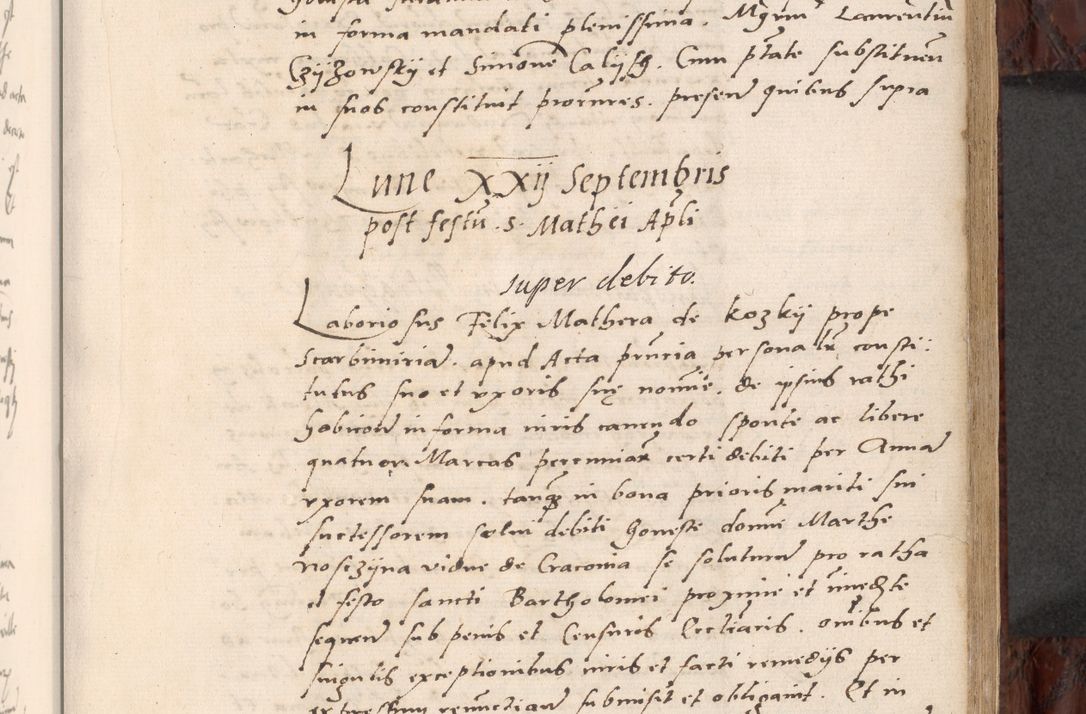 in forma mandati plenissima. Mgrm Laurentiu
Czijzowskij et Simonē Calijsz. Cum ptāte substituen
in suos constituit procures. presen quibus supra
Lune XXij Septembris
post festū. s. Mathei Apli
super debito.
Laboriosus Felix Mathera de kozkij prope
Scarbimiria. apud Acta prncia personalr consti:
tutus suo et vxoris suę nomīe. de ipsius rathi
habicon in forma iuris cauendo sponte ac libere
quatuor Marcas pecuniar certi debiti per Anna
vxorem suam. tanq in bona prioris mariti sui
successorem solui debiti honeste domīe Marthe
Nosczijna vidue de Cracouia se soluturu pro ratha
et festo sancti Bartholomei proxime et īmedte
sequen sub penis et Censuris Ecctiacis. oībus et
singulis exceptionibus iuris et facti remedijs per
expressum renuctiau submisit et obligauit. Et in